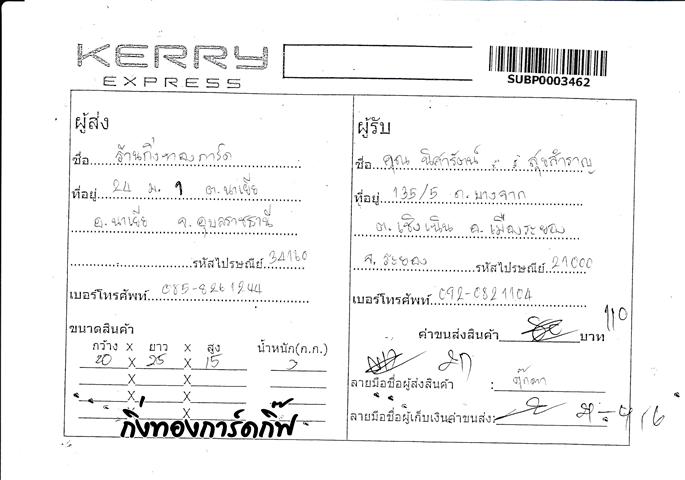 KERRY
EXPRESS
SUBP0003462
ผู้ส่ง
ชื่อ ร้านกิ่งทองการ์ด
ที่อยู่ 24 ม. 1 ต.นาเยีย
อ.นาเยีย จ.อุบลราชธานี
รหัสไปรษณีย์ 34160
เบอร์โทรศัพท์ 085-8261244
ขนาดสินค้า
กว้าง X ยาว X สูง น้ำหนัก(ก.ก.)
20 X 25 X 15
X X
X X
X X
กิ่งทองการ์ดกิ๊ฟ
ผู้รับ
ชื่อ คุณ นิศารัตน์ สุขสำราญ
ที่อยู่ 135/5 ถ.บางจาก
ต.เชิงเนิน อ.เมืองระยอง
จ.ระยอง รหัสไปรษณีย์ 21000
เบอร์โทรศัพท์ 092-0821104
110
ค่าขนส่งสินค้า บาท
ลายมือชื่อผู้ส่งสินค้า : ตุ๊กตา
ลายมือชื่อผู้เก็บเงินค่าขนส่ง: